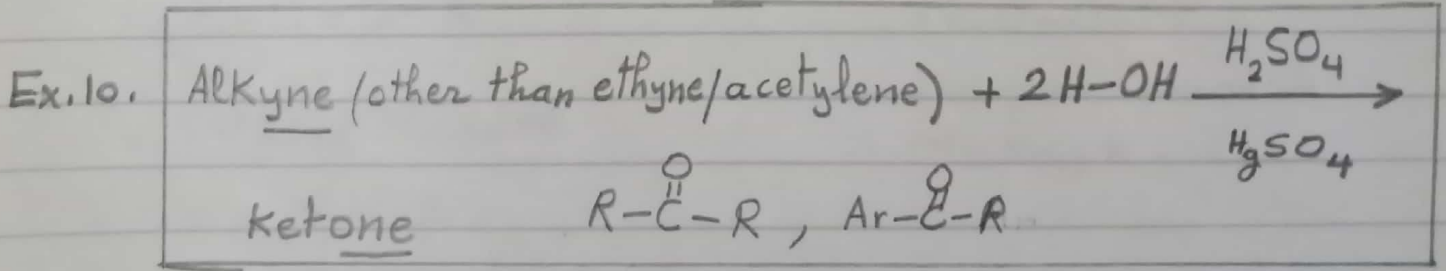 Ex.10. Alkyne (other than ethyne/acetylene) + 2H-OH H₂SO₄ →
HgSO₄
O O
ketone R-C-R, Ar-C-R